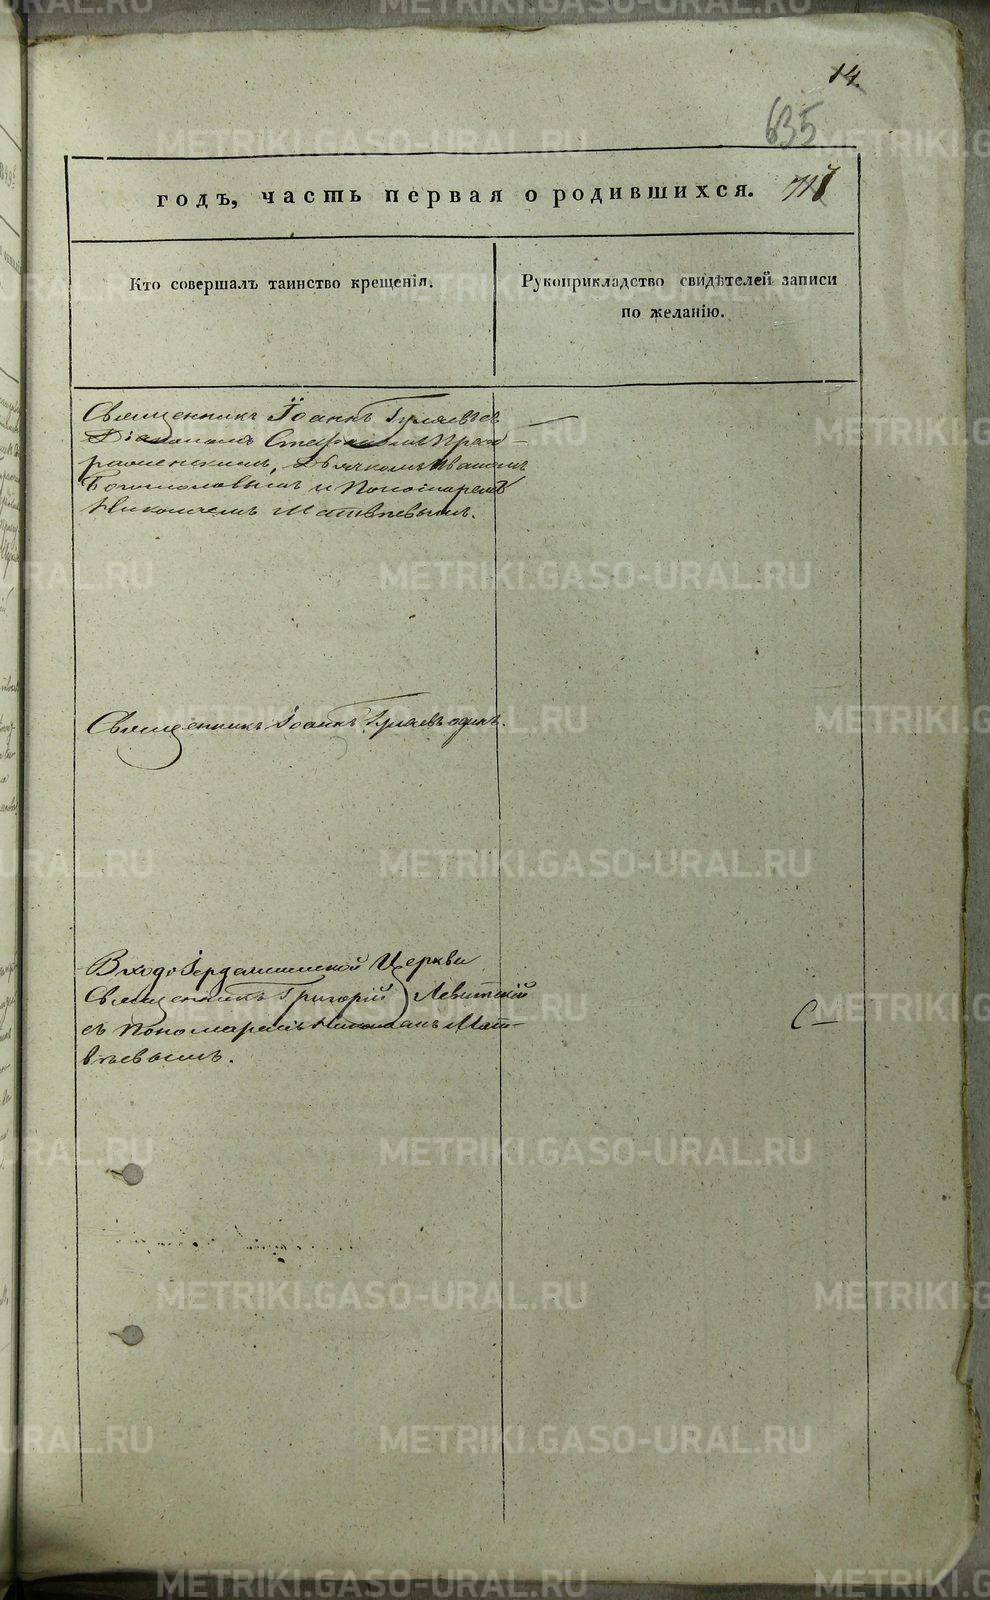 14.
635
годъ, часть первая о родившихся.
Кто совершалъ таинство крещенія.
Рукоприкладство свидѣтелей записи
по желанію.
Священникъ Іоаннъ Гуляевъ съ
Діакономъ
Дьячкомъ Иваномъ
Богомоловымъ и Пономаремъ
Николаемъ Матвѣевымъ.
Священникъ Іоаннъ Гуляевъ одинъ.
Входоіерусалимской Церкви
Священникъ Григорій Левитскій
съ Пономаремъ Николаемъ Мат-
вѣевымъ.
METRIKI.GASO-URAL.RU